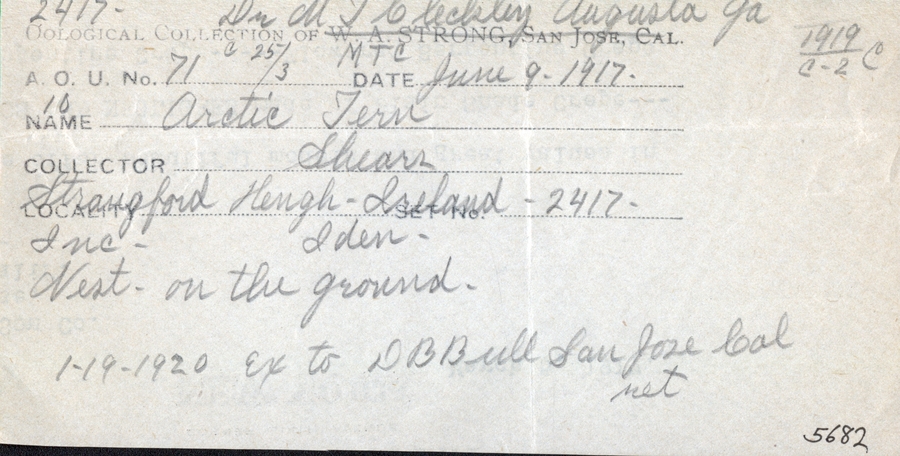 2417- Dr M T Cleckley Augusta Ga
OOLOGICAL COLLECTION OF W. A. STRONG, SAN JOSE, CAL.
M T C
1919
C-2 C
A. O. U. No. 71 c 25/3 DATE June 9-1917.
10
NAME Arctic Tern
COLLECTOR Shears
LOCALITY Strangford Hengh-Ireland SET No. -2417-
Inc- Iden-
Nest- on the ground-
1-19-1920 Ex to D B Bull San Jose Cal
net
5682